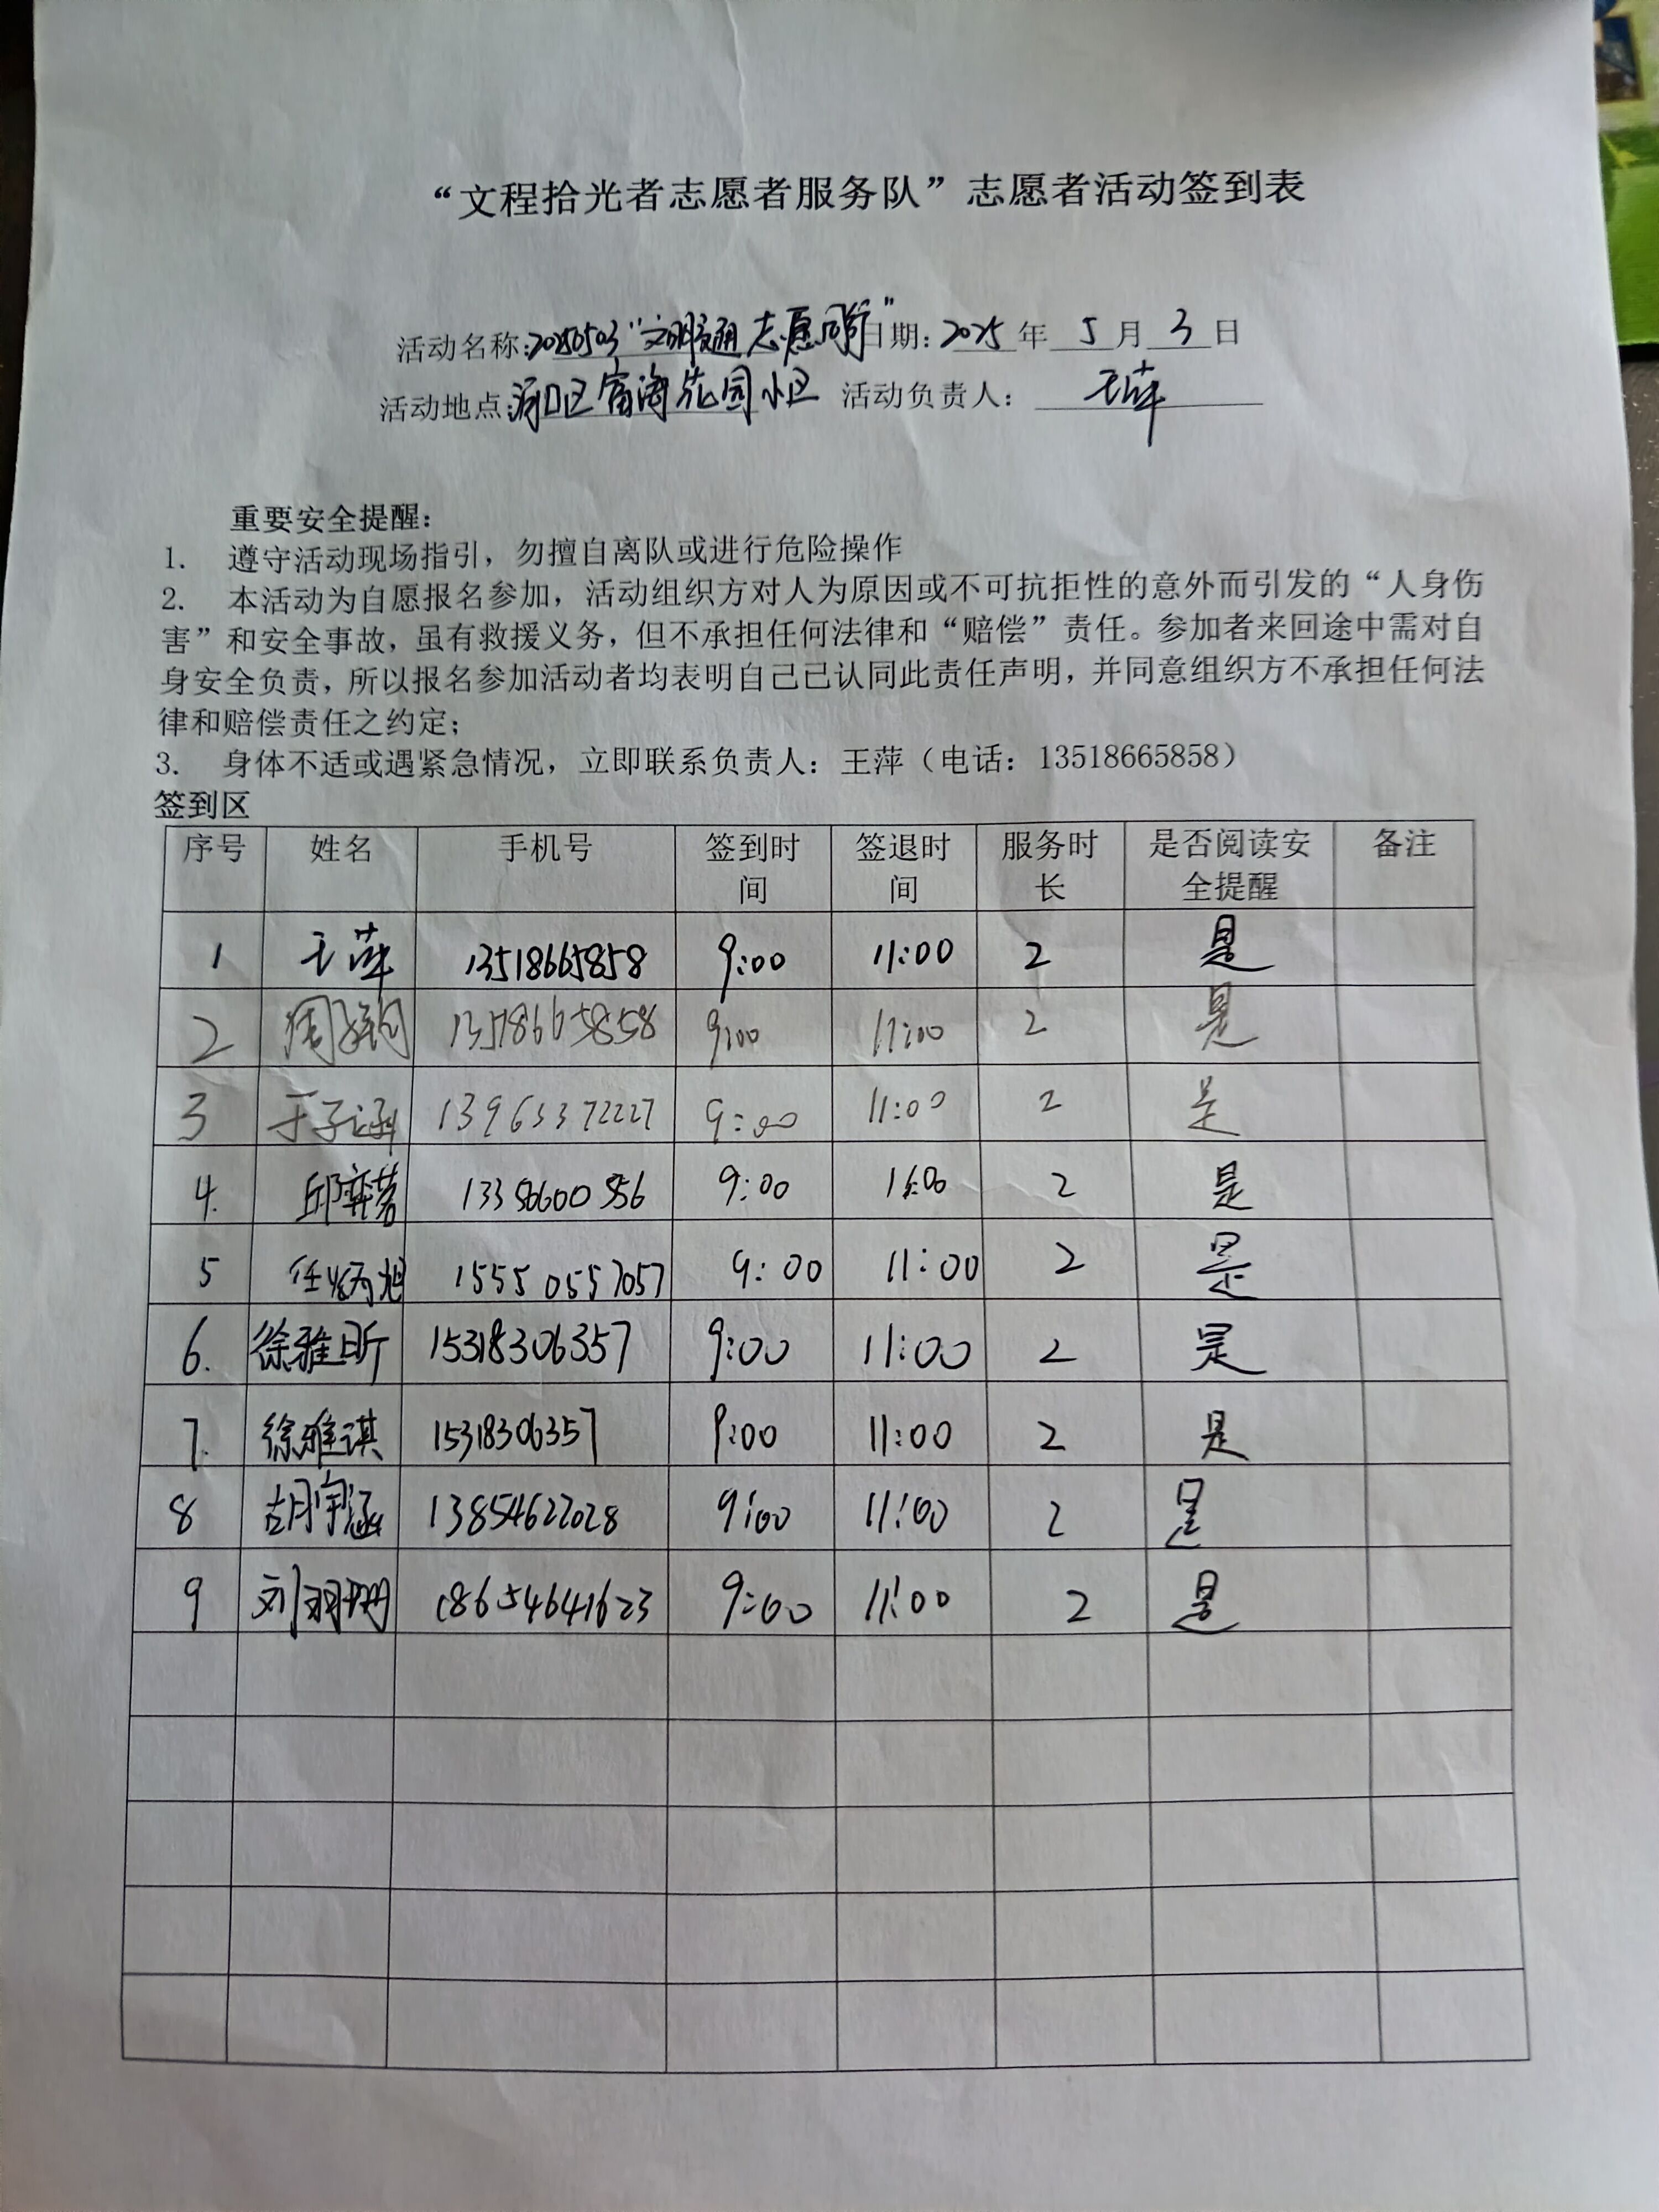 “文程拾光者志愿者服务队”志愿者活动签到表
活动名称:20250503“文明交通 志愿同行”日期:2025年5月3日
活动地点:河口区富海花园小区 活动负责人:王萍
重要安全提醒:
1. 遵守活动现场指引，勿擅自离队或进行危险操作
2. 本活动为自愿报名参加，活动组织方对人为原因或不可抗拒性的意外而引发的“人身伤
害”和安全事故，虽有救援义务，但不承担任何法律和“赔偿”责任。参加者来回途中需对自
身安全负责，所以报名参加活动者均表明自己己认同此责任声明，并同意组织方不承担任何法
律和赔偿责任之约定；
3. 身体不适或遇紧急情况，立即联系负责人：王萍（电话：13518665858）
签到区
序号 姓名 手机号 签到时间 签退时间 服务时长 是否阅读安全提醒 备注
1 王萍 13518665858 9:00 11:00 2 是
2 13518665858 9:00 11:00 2 是
3 于子涵 13963372227 9:00 11:00 2 是
4. 邱奕茗 9:00 11:00 2 是
5 15550557057 9:00 11:00 2 是
6. 徐雅昕 15318306357 9:00 11:00 2 是
7. 徐雅琪 15318306357 9:00 11:00 2 是
8 胡宇涵 13854622028 9:00 11:00 2 是
9 刘羽珊 18654641623 9:00 11:00 2 是